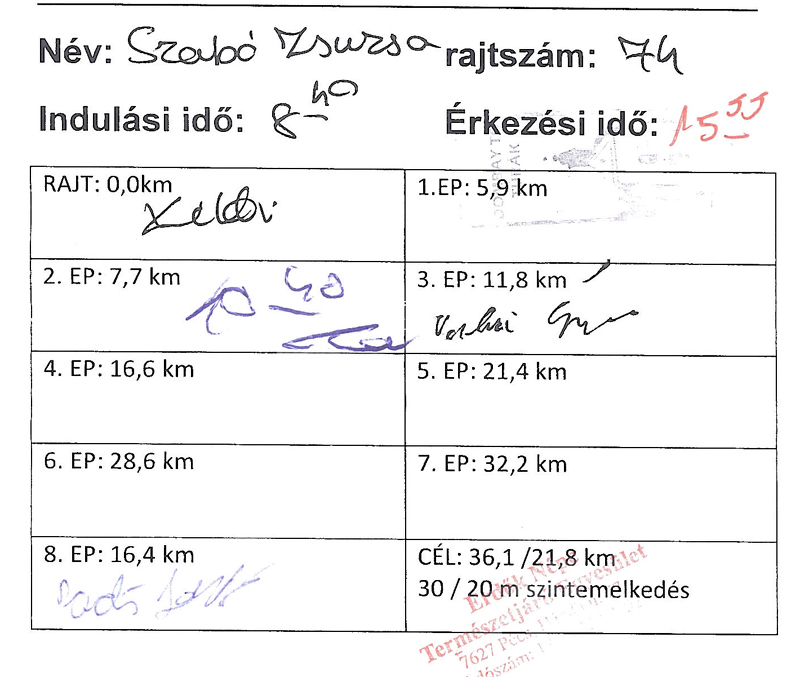 Név: Szabó Zsuzsa rajtszám: 74
Indulási idő: 8 40 Érkezési idő: 15 55
RAJT: 0,0km
1.EP: 5,9 km
2. EP: 7,7 km
10 40
3. EP: 11,8 km
4. EP: 16,6 km
5. EP: 21,4 km
6. EP: 28,6 km
7. EP: 32,2 km
8. EP: 16,4 km
CÉL: 36,1 /21,8 km
30 / 20 m szintemelkedés
Erdők Népe
Természetjáró Egyesület
7627 Pécs